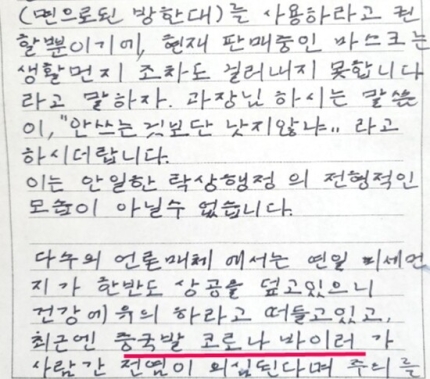 (면으로된 방한대)를 사용하라고 권
할뿐이기에, 현재 판매중인 마스크는
생활먼지 조차도 걸러내지 못합니다
라고 말하자. 과장님 하시는 말씀
이, "안쓰는 것보단 낫지않냐.. 라고
하시더랍니다.
이는 안일한 탁상행정 의 전형적인
모습이 아닐수 없습니다.
다수의 언론매체 에서는 연일 미세먼
지가 한반도 상공을 덮고있으니
건강에 유의 하라고 떠들고있고,
최근엔 중국발 코로나 바이러 가
사람간 전염이 의심된다며 주의를